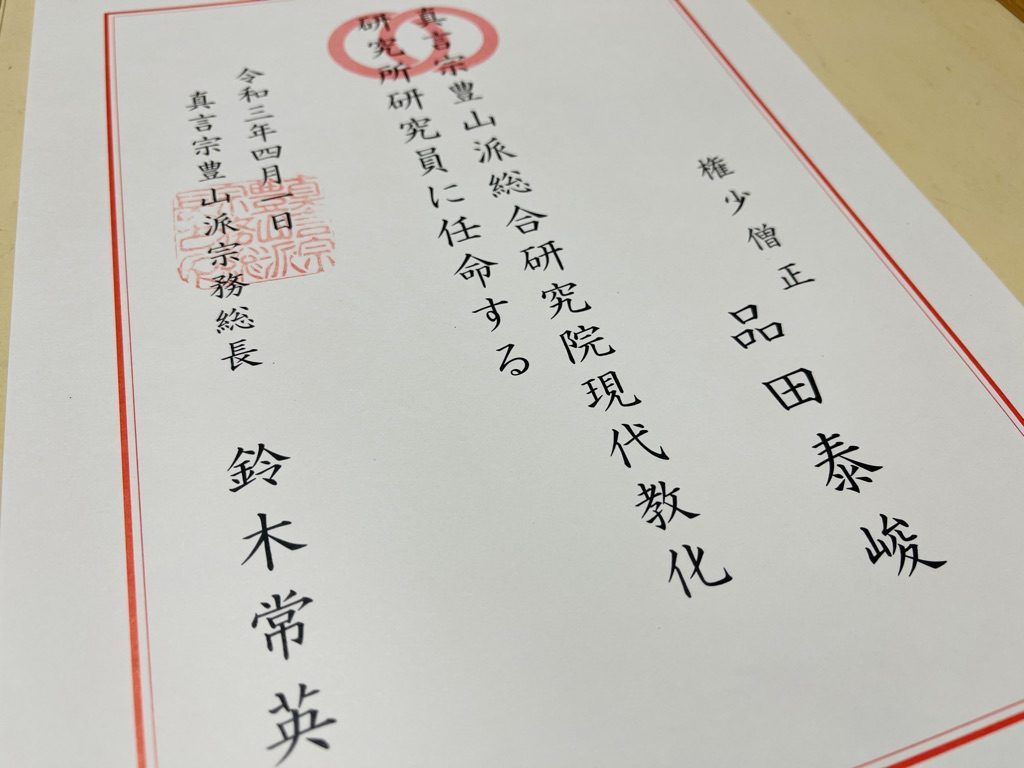 権少僧正
品田泰峻
真言宗豊山派総合研究院現代教化
研究所研究員に任命する
令和三年四月一日
真言宗豊山派宗務総長
鈴木常英